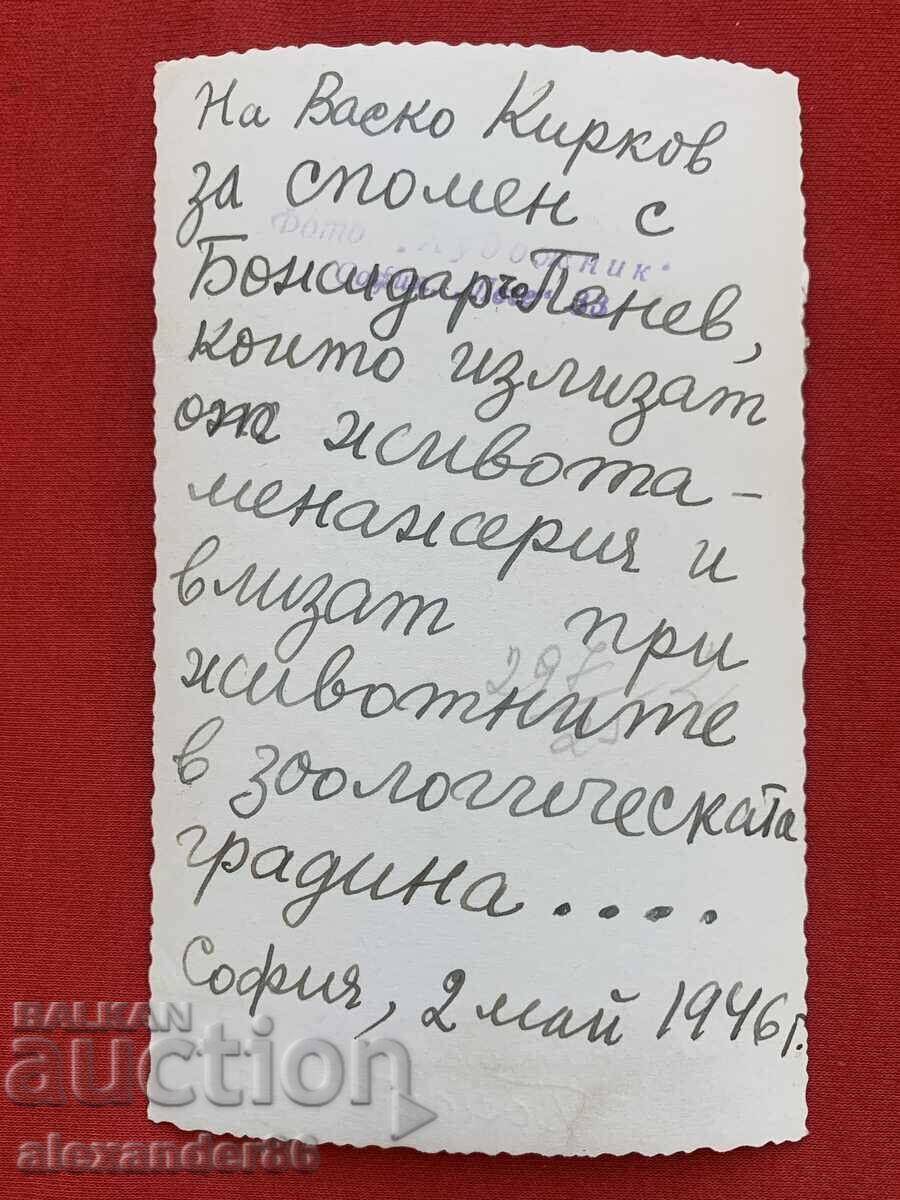 На Васко Кирков
за спомен с
Фото „Художник“
Божидаръ Пенев,
София
33
които излизат
от живота –
менажерия и
влизат при
297
25
животните
в зоологическата
градина . . . .
София, 2 май 1946 г.
BALKAN
auction
alexander86